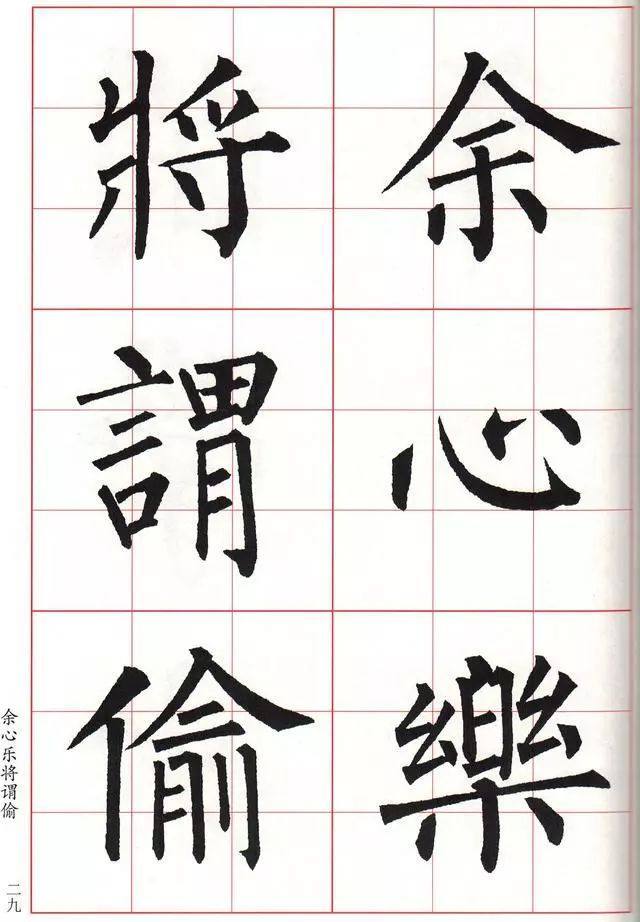 余心樂
將謂偷
余心乐将谓偷
二九